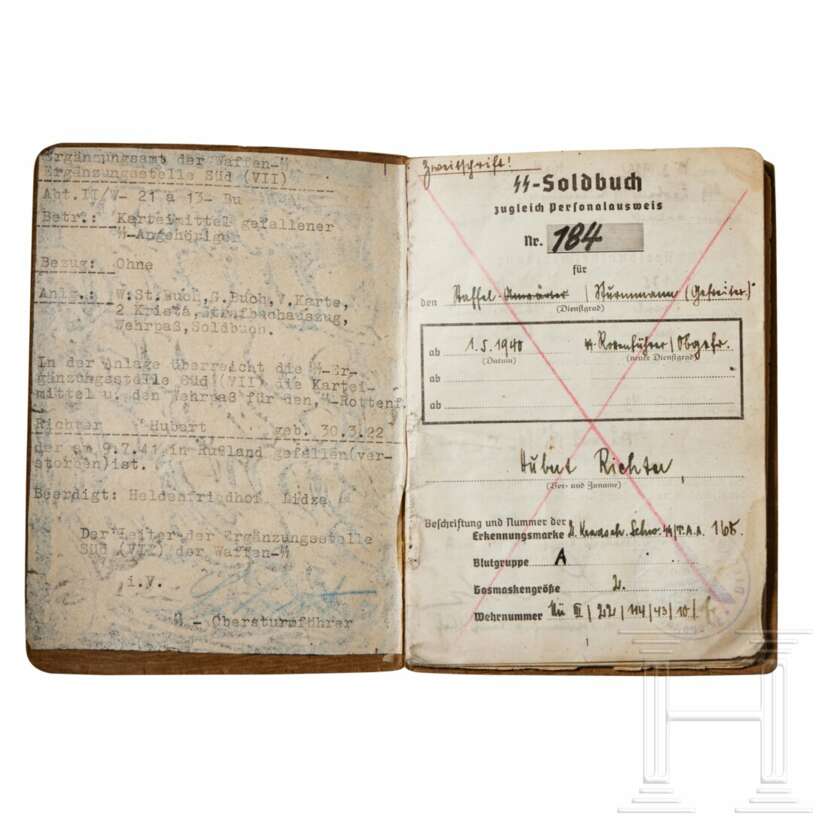 Ergänzungsamt der Waffen-ᛋᛋ
Ergänzungsstelle Süd (VII)
Abt.II/V- 21 a 13- Bu
Betr.: Karteimittel gefallener
ᛋᛋ-Angehöriger
Bezug: Ohne
Anlg.: W.St.Buch,G.Buch,V.Karte,
2 Krista, Strafbuchauszug,
Wehrpaß, Soldbuch.
In der Anlage überreicht die ᛋᛋ-Er-
gänzungsstelle Süd (VII) die Kartei-
mittel u. den Wehrpaß für den ᛋᛋ-Rottenf.
Richter Hubert geb. 30.3.22
der am 9.7.41 in Rußland gefallen(ver-
storben)ist.
Beerdigt: Heldenfriedhof
Der Leiter der Ergänzungsstelle
Süd (VII) der Waffen-ᛋᛋ
i.V.
ᛋᛋ - Obersturmführer
Zweitschrift!
ᛋᛋ-Soldbuch
zugleich Personalausweis
Nr. 184
für
den Staffel-Anwärter / Sturmmann (Gefreiter)
(Dienstgrad)
ab 1.5.1940 ᛋᛋ Rottenführer / Obgefr.
(Datum) (neuer Dienstgrad)
ab
ab
Hubert Richter
(Vor- und Zuname)
Beschriftung und Nummer der
Erkennungsmarke ᛋᛋ/T.A.A. 165.
Blutgruppe A
Gasmaskengröße 2.
Wehrnummer Nü III / 22 / 114 / 43 / 10 /
1
H